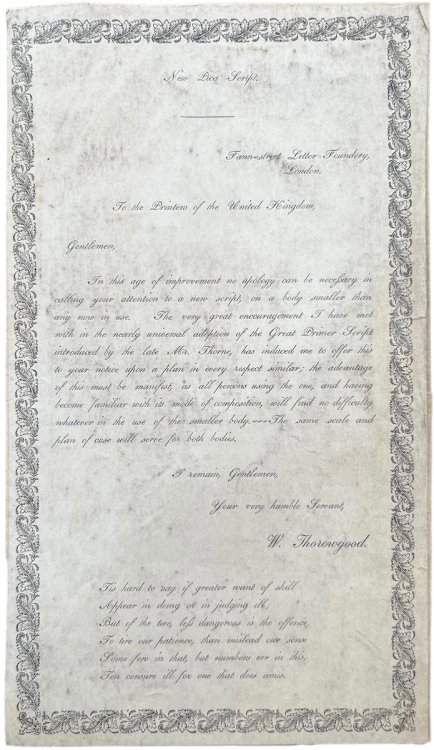 New Pica Script.
Fann-street Letter Foundery,
London.
To the Printers of the United Kingdom,
Gentlemen,
In this age of improvement no apology can be neceſsary in
calling your attention to a new script, on a body smaller than
any now in use. The very great encouragement I have met
with in the nearly universal adoption of the Great Primer Script
introduced by the late Mr. Thorne, has induced me to offer this
to your notice upon a plan in every respect similar; the advantage
of this must be manifest, as all persons using the one, and having
become familiar with its mode of composition, will find no difficulty
whatever in the use of the smaller body.---The same scale and
plan of case will serve for both bodies.
I remain, Gentlemen,
Your very humble Servant,
W. Thorowgood.
Tis hard to say if greater want of skill
Appear in doing or in judging ill;
But of the two, leſs dangerous is the offence,
To tire our patience, than mislead our sense
Some few in that, but numbers err in this,
Ten censure ill for one that does amis.